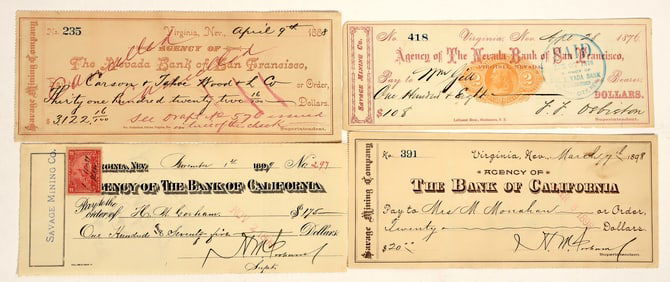 No. 235 Virginia, Nev., April 9th 1888
AGENCY OF
The Nevada Bank of San Francisco,
Pay to Carson & Tahoe Wood & L Co or Order,
Thirty one Hundred twenty two 16/100 Dollars.
$3122 16/100 see draft No 590 issued
Superintendent.
Savage Mining Company
No. 418 Virginia, Nev. Sept 1876
Agency of The Nevada Bank of San Francisco,
Pay to Wm Gill or Bearer
One Hundred & Eight DOLLARS.
$108
Superintendent.
SAVAGE MINING CO.
PAID
NEVADA BANK
SAVAGE MINING CO.
VIRGINIA, NEV. November 1st 1898 No 297
AGENCY OF THE BANK OF CALIFORNIA
Pay to the
order of H. M. Gorham $175
One Hundred & Seventy five Dollars
Supt.
No. 391 Virginia, Nev. March 7th 1898
AGENCY OF
THE BANK OF CALIFORNIA
Pay to Mrs M Monahan or Order,
Twenty Dollars.
$20
Superintendent.
Savage Mining Company